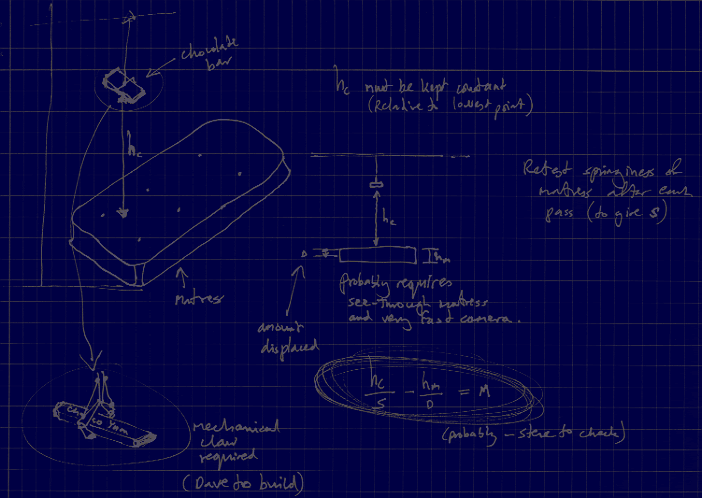 chocolate
bar
hc must be kept constant
(Relative to lowest point)
hc
Retest springiness of
matress after each
pass (to give S)
hc
D
hm
matress
probably requires
see-through matress
and very fast camera.
amount
displaced
hc/S - hm/D = M
(probably - steve to check)
mechanical
claw
required
(Dave to build)